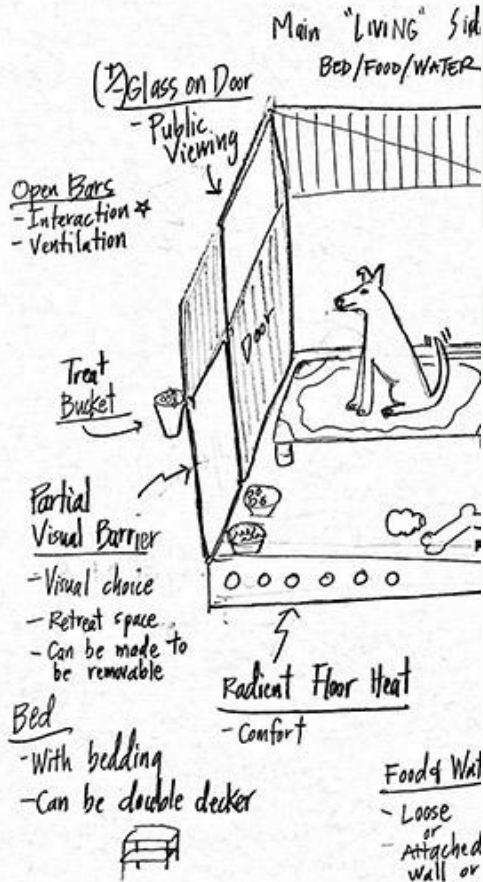 Main "LIVING" Sid
BED/FOOD/WATER
(+/-) Glass on Door
- Public
Viewing
Open Bars
- Interaction ☆
- Ventilation
Door
Treat
Bucket
Partial
Visual Barrier
- Visual choice
- Retreat space
- Can be made to
be removable
Radient Floor Heat
- Comfort
Bed
- With bedding
- Can be double decker
Food & Wat
- Loose
or
- Attached
Wall or